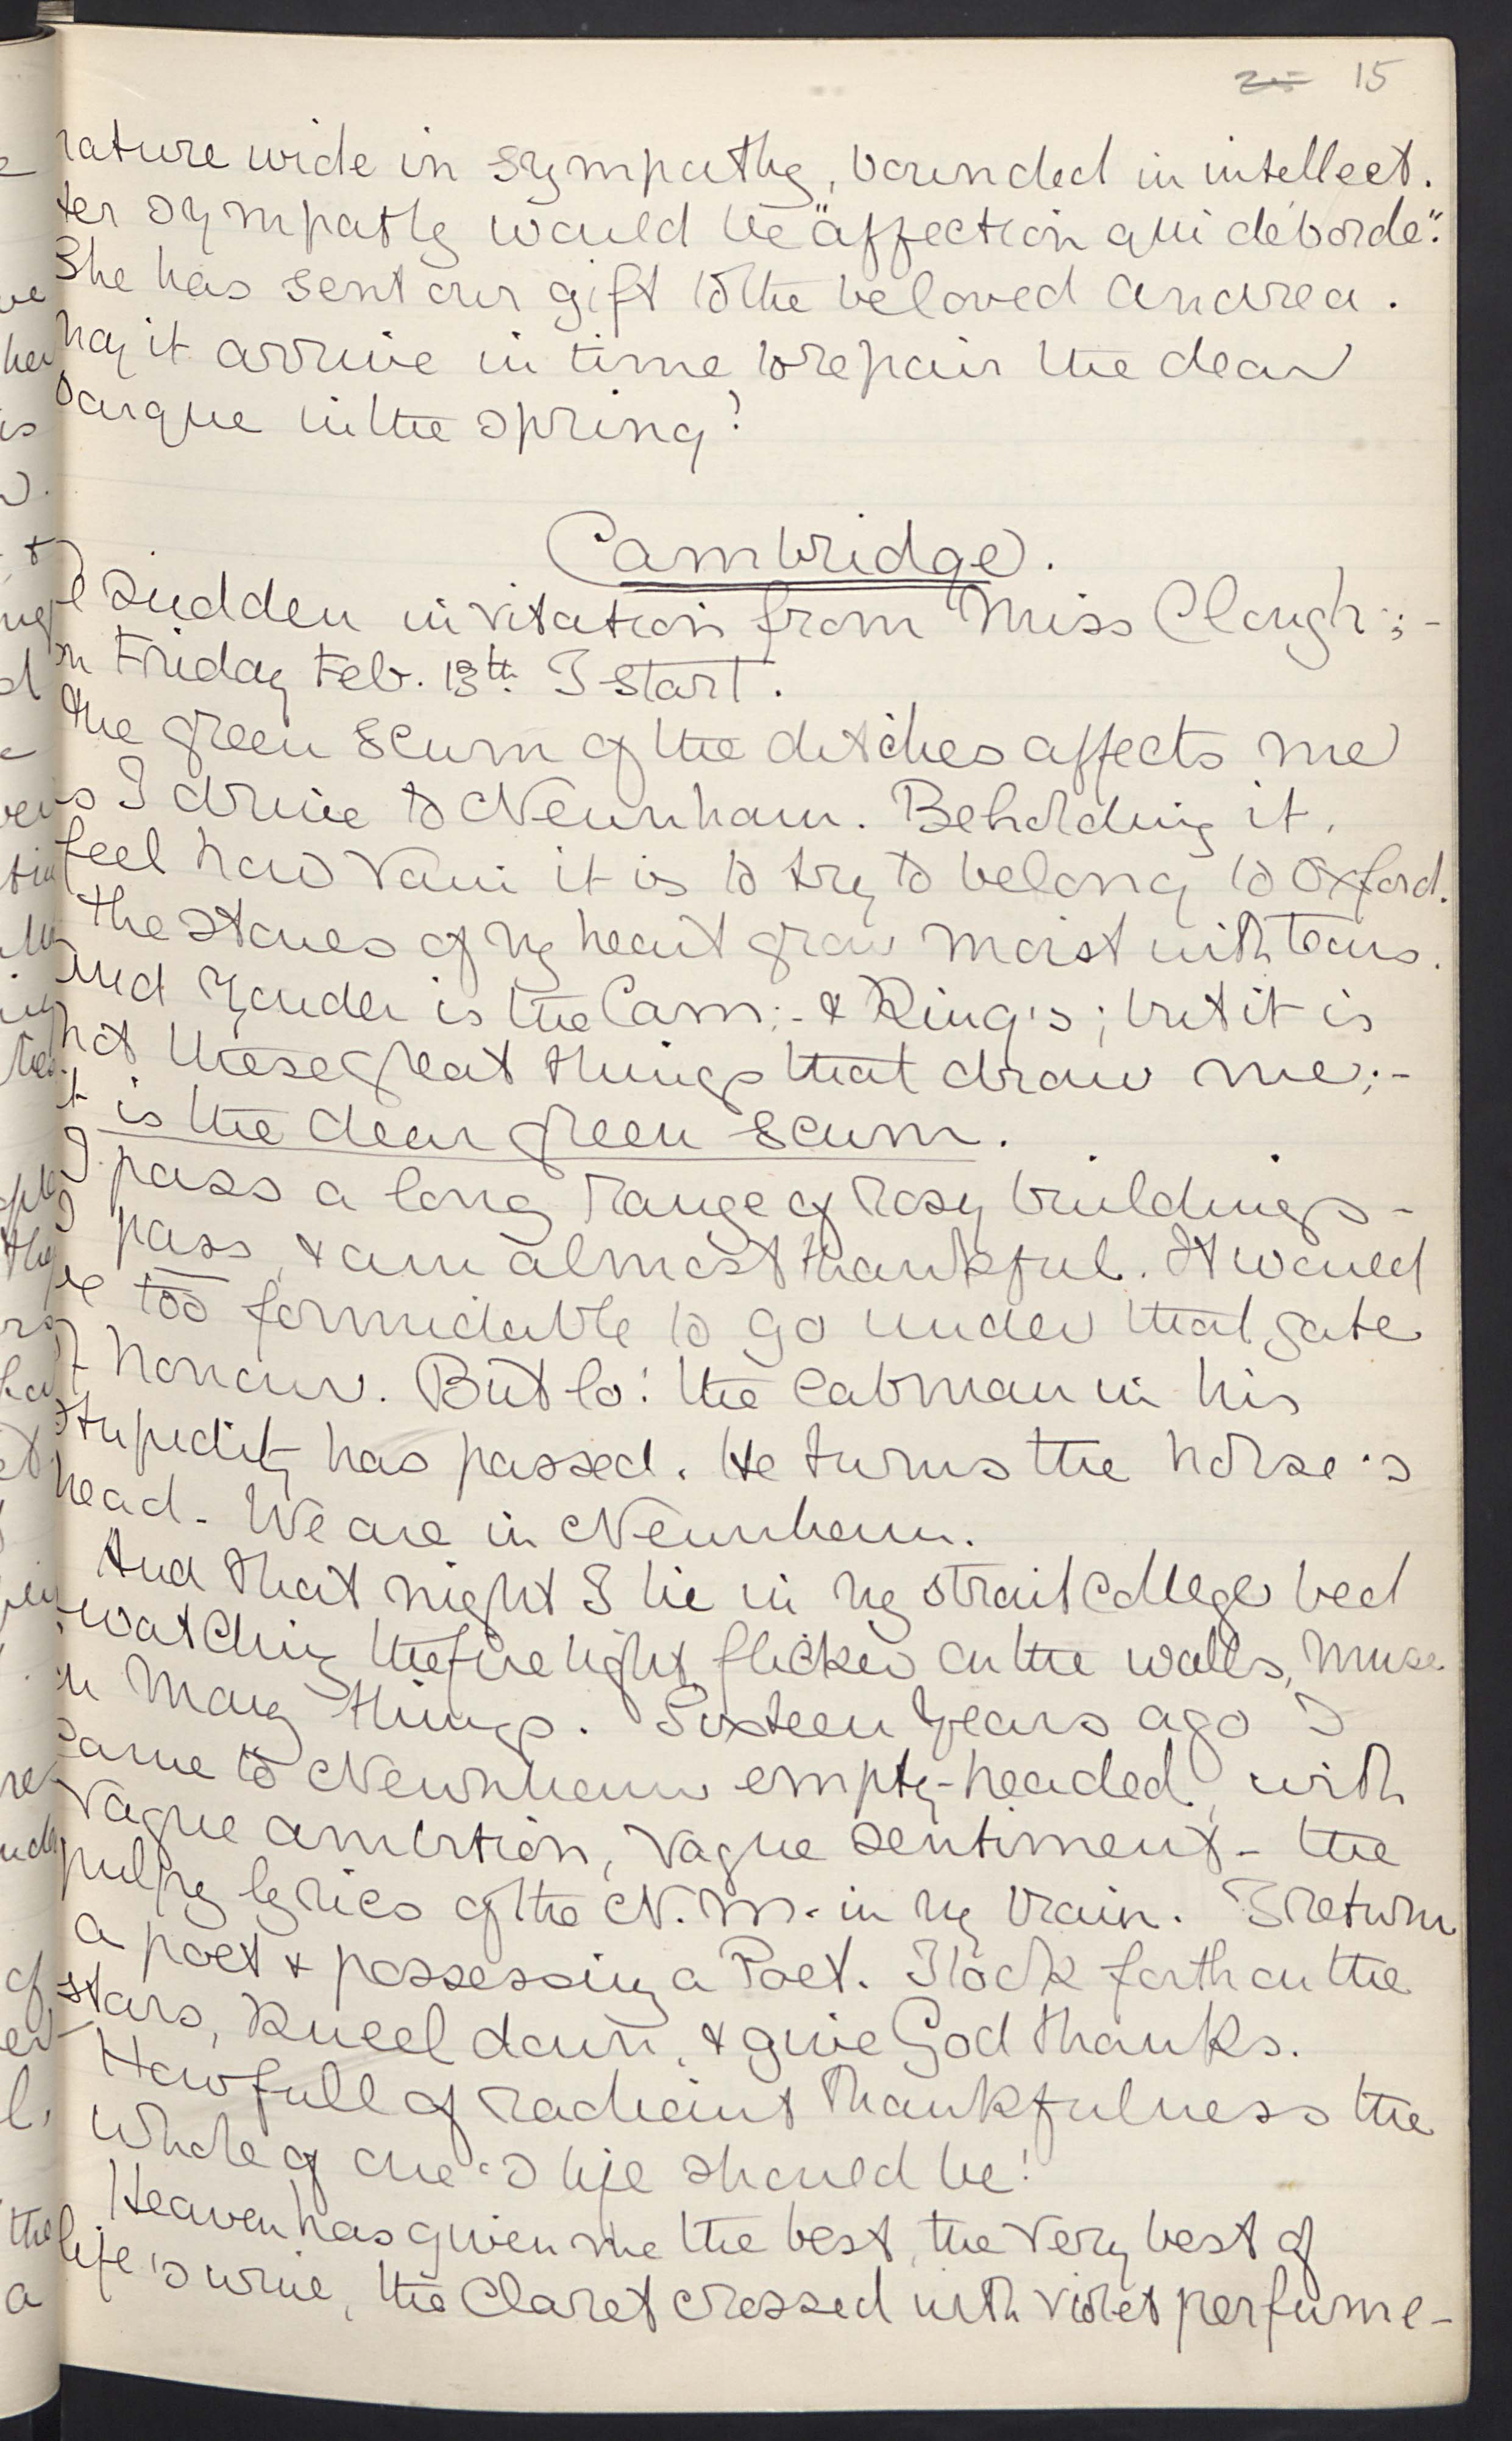 15
nature wide in sympathy, bounded in intellect.
Her sympathy would be "affection qui déborde".
She has sent our gift to the beloved Andrea.
May it arrive in time to repair the dear
barque in the spring!
Cambridge.
A sudden invitation from Miss Clough; -
on Friday Feb. 13th I start.
The green scum of the ditches affects me
as I drive to Newnham. Beholding it,
feel how vain it is to try to belong to Oxford.
The stones of my heart grow moist with tears.
And yonder is the Cam; - & King's; but it is
not these great things that draw me; -
it is the dear green scum.
I pass a long range of rosy buildings -
I pass, & am almost thankful. It would
be too formidable to go under that gate
of honour. But lo! the cabman in his
stupidity has passed. He turns the horse's
head - We are in Newnham.
And that night I lie in my strait college bed
watching the firelight flicker on the walls, muse
on many things. Sixteen years ago I
came to Newnham empty-headed, with
vague ambition, vague sentiment - the
pulpy lyrics of the N. M. in my brain. I return
a poet & possessing a Poet. I look forth on the
stars, kneel down, & give God thanks.
How full of radiant thankfulness the
whole of one's life should be!
Heaven has given me the best, the very best of
life's wine, the Claret crossed with violet perfume -